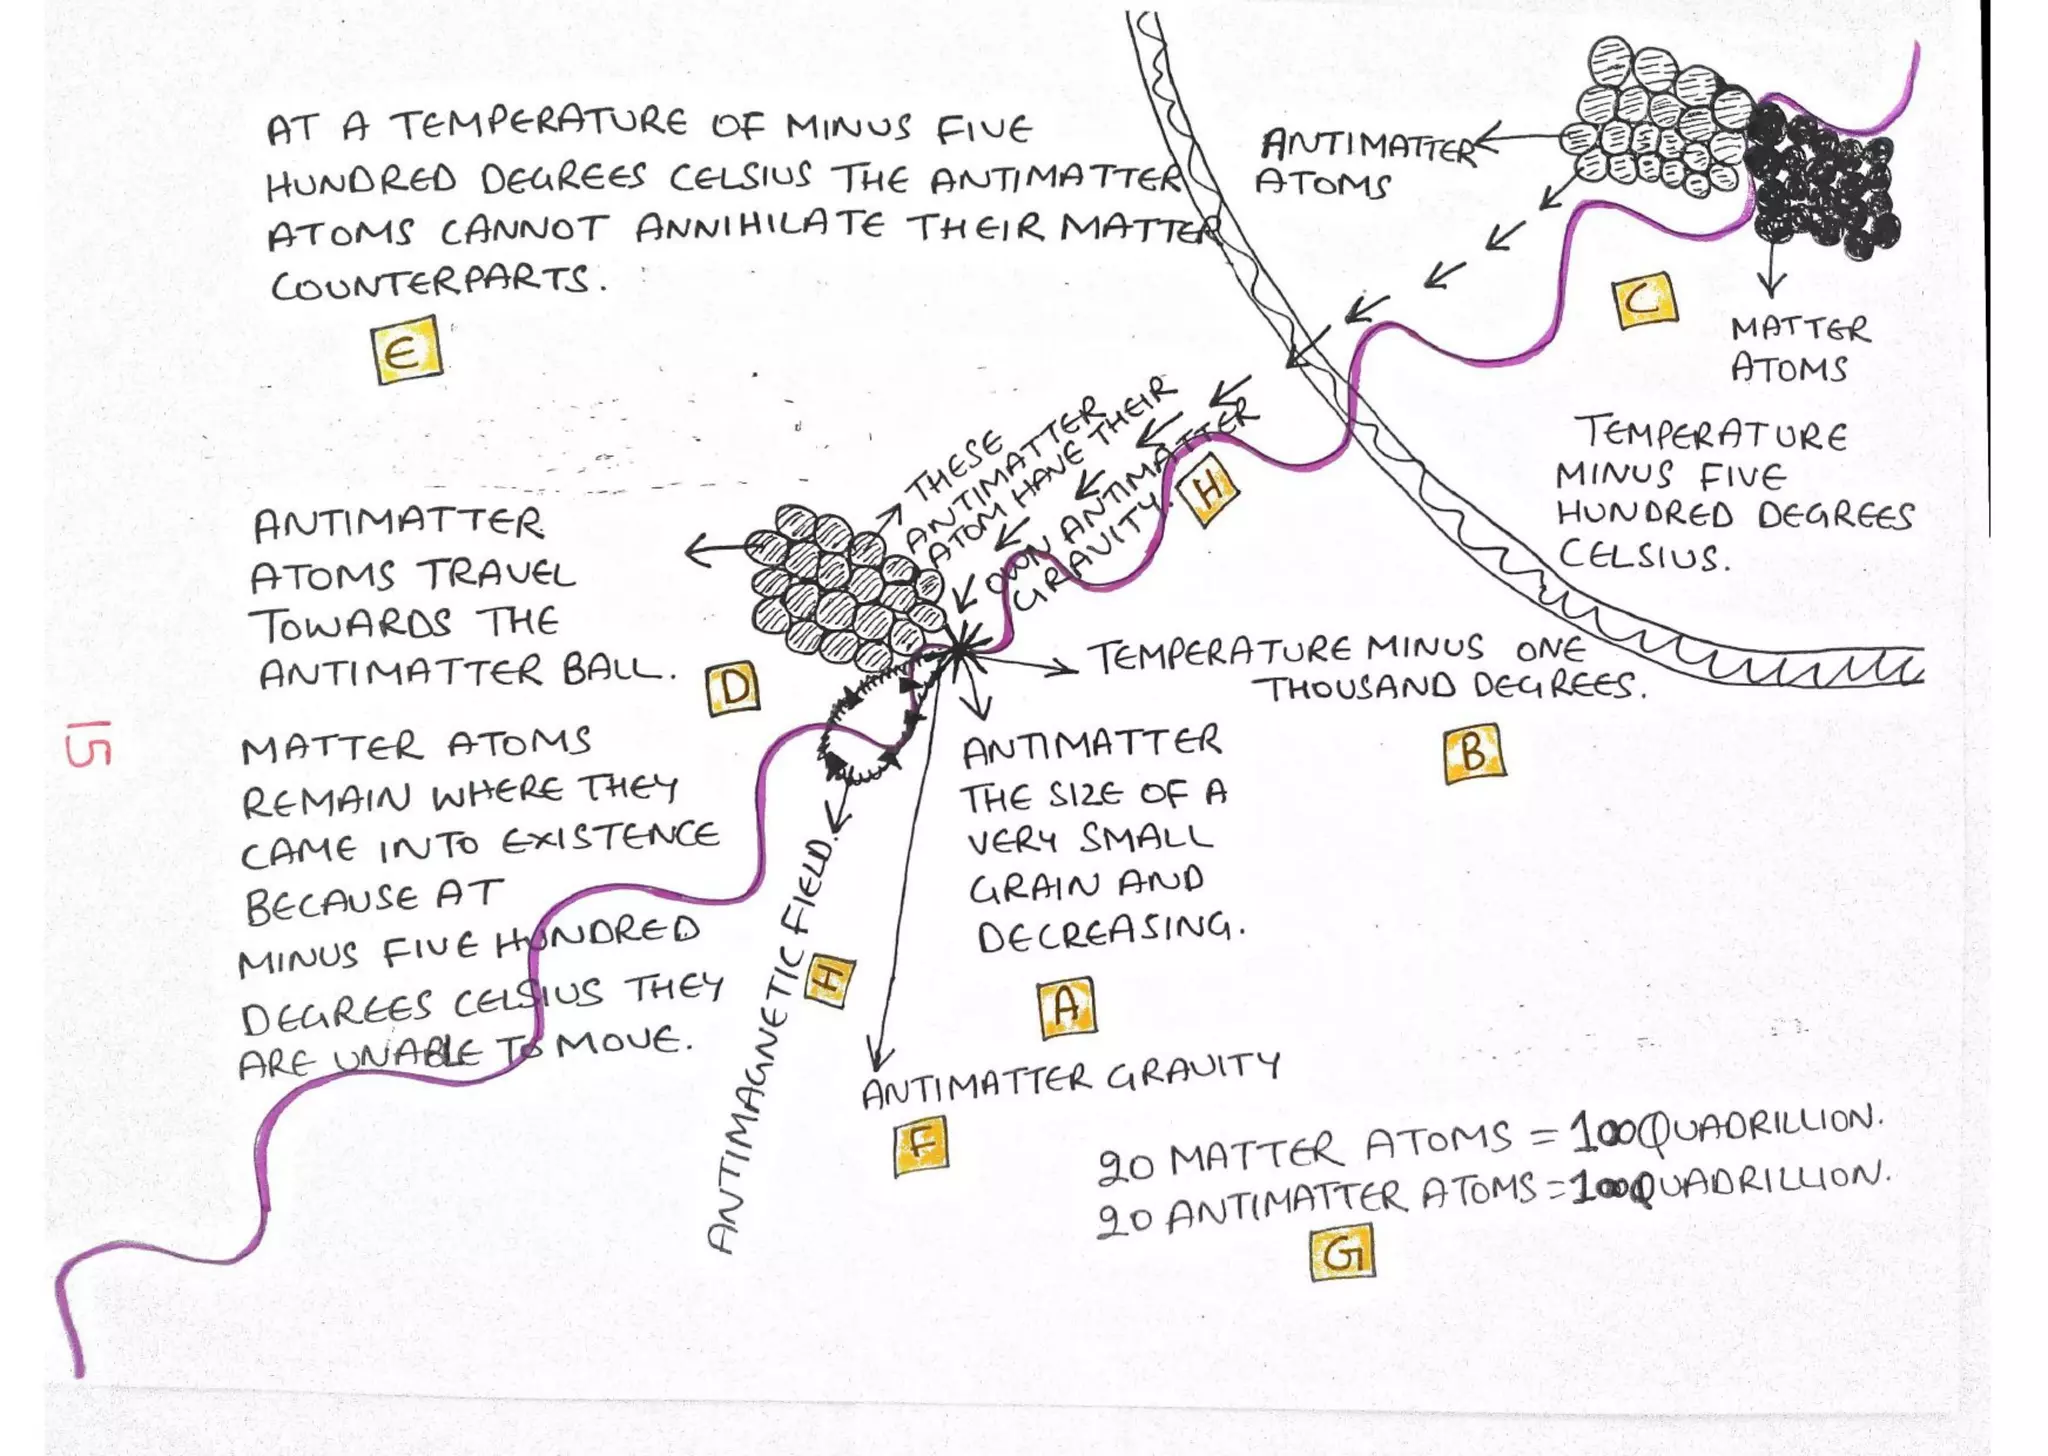 AT A TEMPERATURE OF MINUS FIVE
HUNDRED DEGREES CELSIUS THE ANTIMATTER
ATOMS CANNOT ANNIHILATE THEIR MATTER
COUNTERPARTS.
E
ANTIMATTER
ATOMS
C
MATTER
ATOMS
TEMPERATURE
MINUS FIVE
HUNDRED DEGREES
CELSIUS.
THESE
ANTIMATTER
ATOM HAVE THEIR
OWN ANTIMATTER
GRAVITY.
H
ANTIMATTER
ATOMS TRAVEL
TOWARDS THE
ANTIMATTER BALL.
D
TEMPERATURE MINUS ONE
THOUSAND DEGREES.
B
15
MATTER ATOMS
REMAIN WHERE THEY
CAME INTO EXISTENCE
BECAUSE AT
MINUS FIVE HUNDRED
DEGREES CELSIUS THEY
ARE UNABLE TO MOVE.
ANTIMAGNETIC FIELD.
H
ANTIMATTER
THE SIZE OF A
VERY SMALL
GRAIN AND
DECREASING.
A
ANTIMATTER GRAVITY
F
20 MATTER ATOMS = 100QUADRILLION.
20 ANTIMATTER ATOMS = 100QUADRILLION.
G